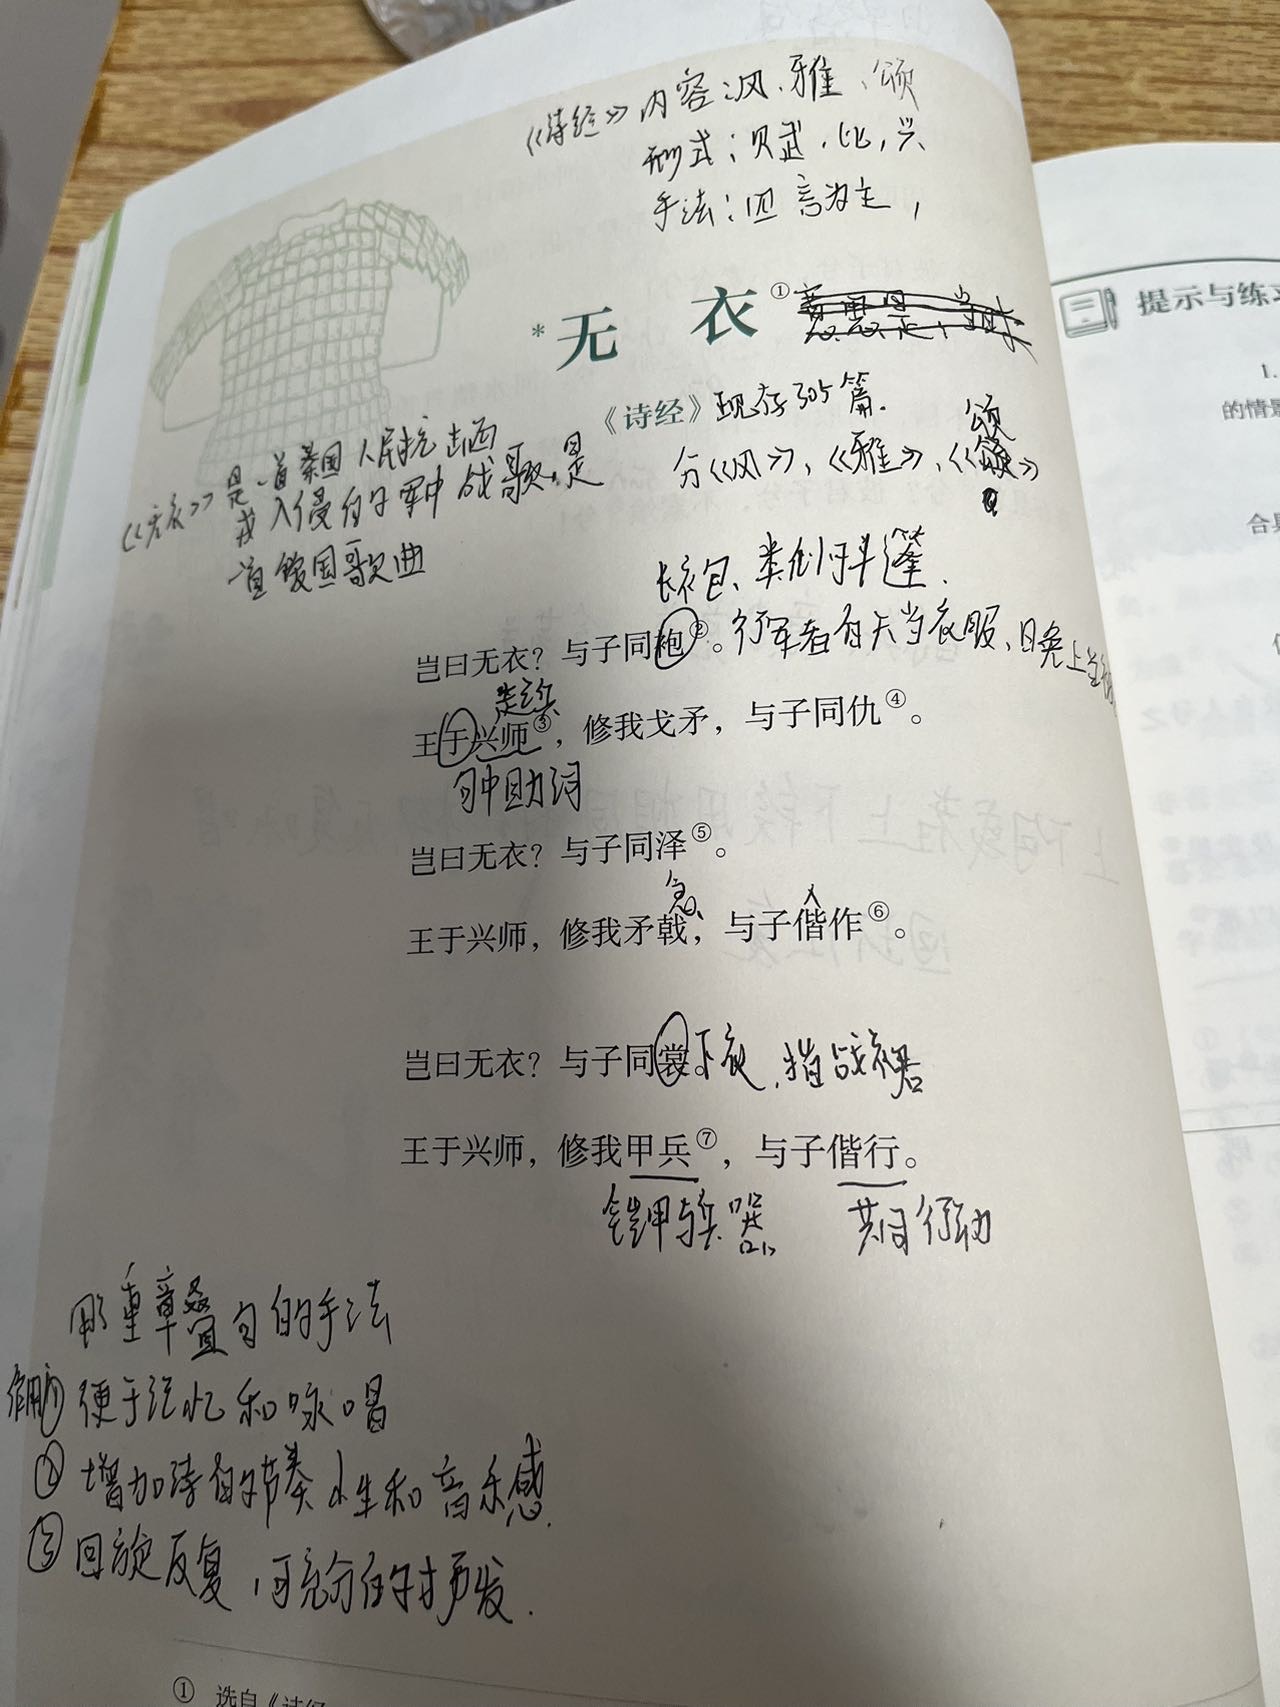 《诗经》内容:风、雅、颂
形式:赋、比、兴
手法:四言为主,
*无 衣①
《诗经》现存305篇.
分《风》、《雅》、《颂》
《无衣》是一首秦国人民抗击西
戎入侵的军中战歌,是
一首爱国歌曲
长衣包、类似于斗篷.
岂曰无衣?与子同袍②。行军者白天当衣服、晚上
起兵
王于兴师③,修我戈矛,与子同仇④。
句中助词
岂曰无衣?与子同泽⑤。
王于兴师,修我矛戟,与子偕作⑥。
岂曰无衣?与子同裳。下衣,指战裙
王于兴师,修我甲兵⑦,与子偕行。
铠甲与兵器 共同行动
用重章叠句的手法
作用① 便于记忆和咏唱
② 增加诗的节奏性和音乐感.
③ 回旋反复,可充分的抒发.
① 选自《诗经
提示与练习
1.
的情景
合